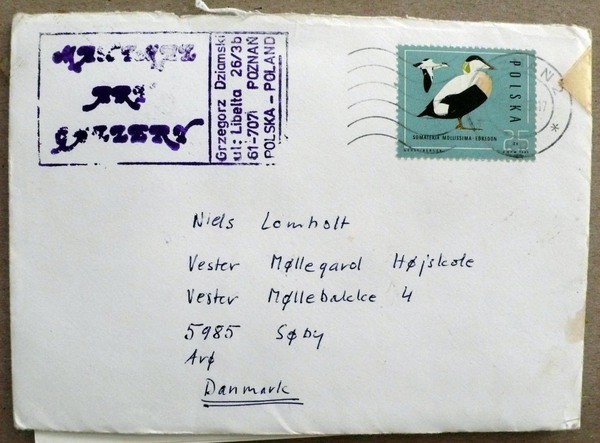 ART
GALLERY
Grzegorz Dziamski
ul: Libelta 26/3b
61-707 POZNAŃ
POLSKA - POLAND
POLSKA
SOMATERIA MOLLISSIMA - EDREDON
25
Niels Lomholt
Vester Møllegard Højskole
Vester Møllebakke 4
5985 Søby
Arø
Danmark